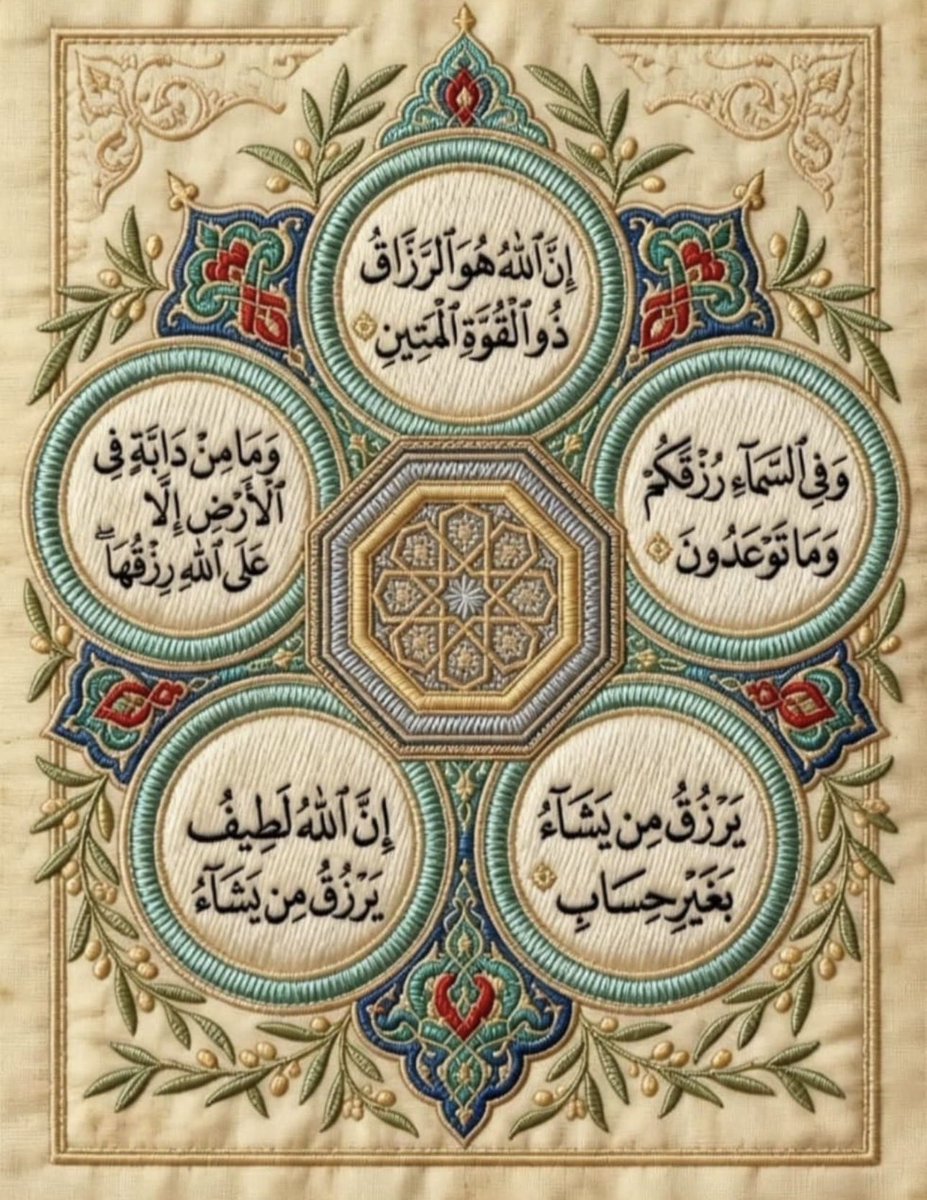 إِنَّ ٱللَّهَ هُوَ ٱلرَّزَّاقُ
ذُو ٱلْقُوَّةِ ٱلْمَتِينِ
وَفِي ٱلسَّمَآءِ رُزْقَكُمْ
وَمَا تَوْعَدُونَ
وَمَا مِنْ دَابَّةٍ فِي
ٱلْأَرْضِ إِلَّا
عَلَى ٱللَّهِ رِزْقُهَا
يَرْزُقُ مِن يَشَآءُ
بَغَيْرِ حِسَابٍ
إِنَّ ٱللَّهُ لَطِيفُ
يَرْزُقُ مِن يَشَآءُ